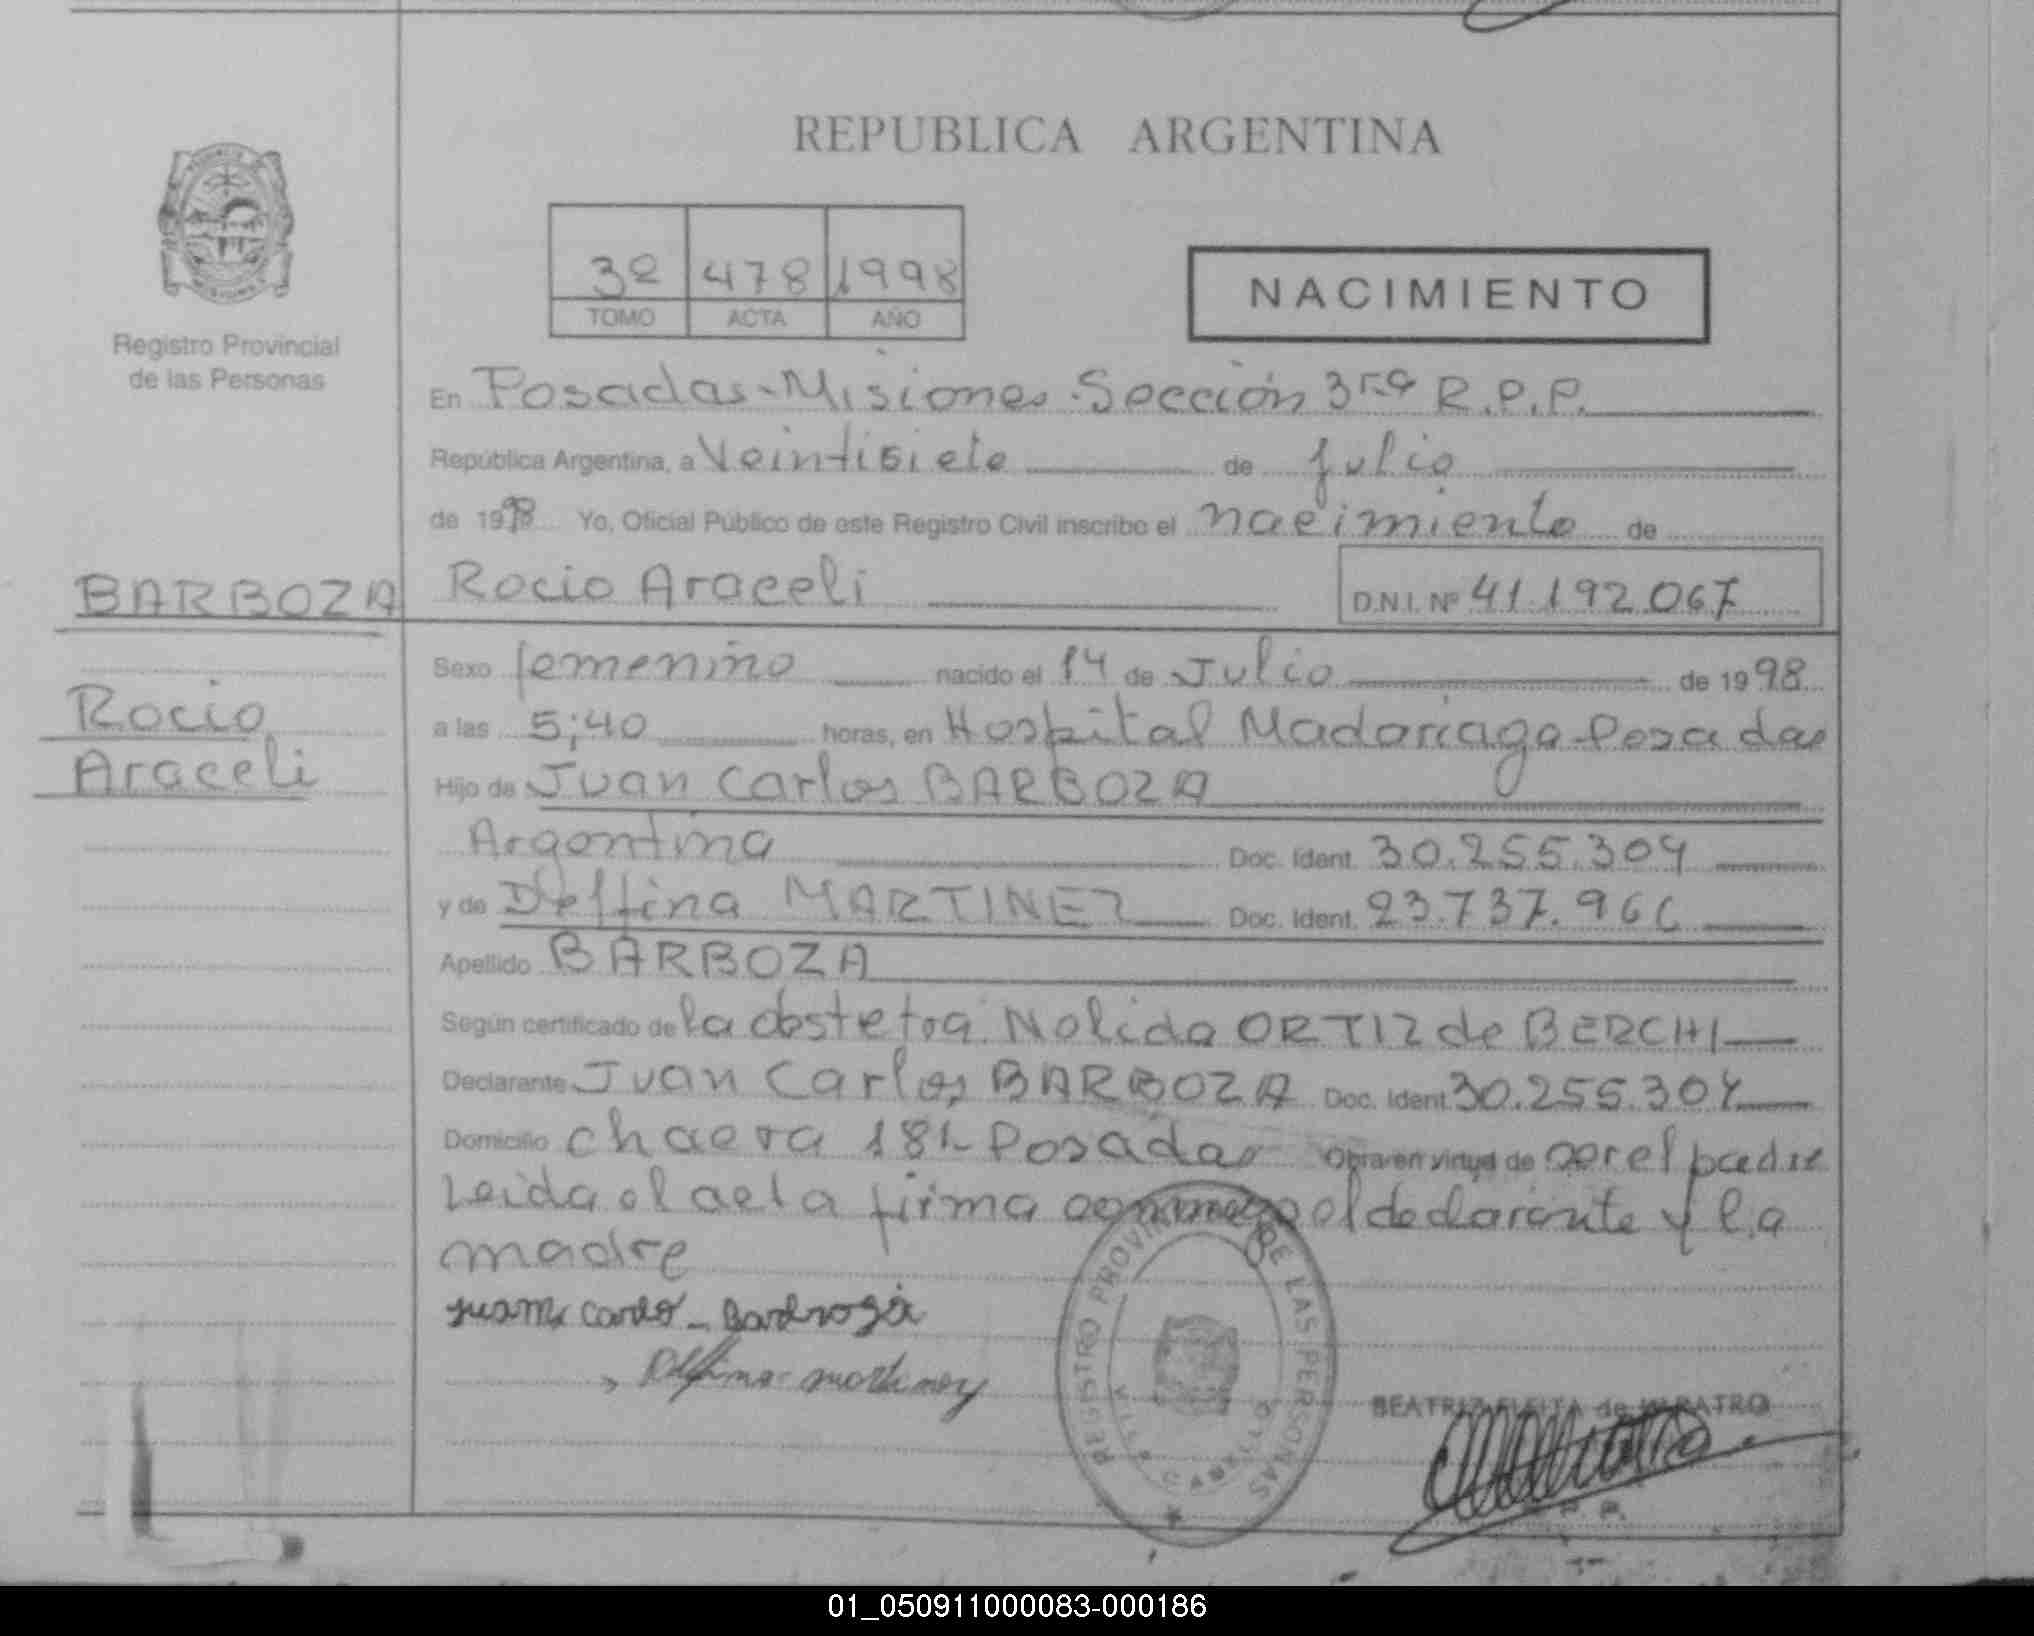 REPUBLICA ARGENTINA
3º 478 1998
TOMO ACTA AÑO
NACIMIENTO
Registro Provincial
de las Personas
En Posadas-Misiones-Sección 3ra R.P.P.
República Argentina, a Veintisiete de julio
de 1998 Yo, Oficial Público de este Registro Civil inscribo el nacimiento de
BARBOZA Rocio Araceli D.N.I. Nº 41.192.067
Sexo femenino nacido el 14 de Julio de 1998
Rocio
Araceli
a las 5;40 horas, en Hospital Madariaga-Posadas
Hijo de Juan Carlos BARBOZA
Argentina Doc. Ident. 30.255.304
y de Delfina MARTINEZ Doc. Ident. 23.737.966
Apellido BARBOZA
Según certificado de la obstetra Nelida ORTIZ de BERCHI
Declarante Juan Carlos BARBOZA Doc. Ident. 30.255.304
Domicilio chacra 181- Posadas Obra en virtud de ser el padre
Leida el acta firma conmigo el declarante y la
madre
Delfina martinez
REGISTRO PROVINCIAL DE LAS PERSONAS
VILLA CABELLO
BEATRIZ FLEITA de
01_050911000083-000186